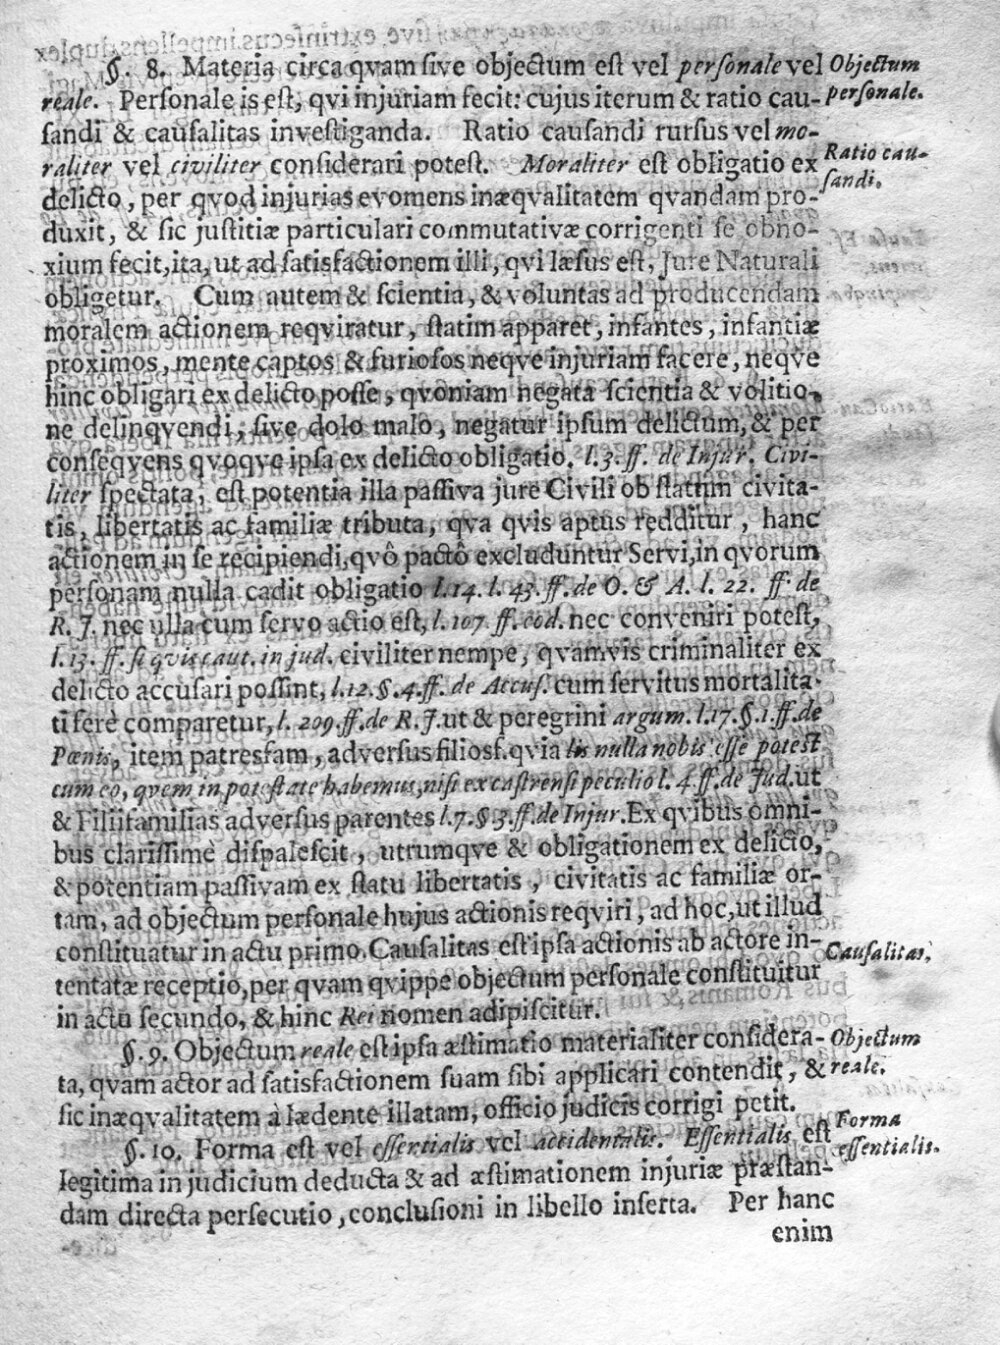 §. 8. Materia circa qvam sive objectum est vel personale vel
reale. Personale is est, qvi injuriam fecit: cujus iterum & ratio cau-
sandi & causalitas investiganda. Ratio causandi rursus vel mo-
raliter vel civiliter considerari potest. Moraliter est obligatio ex
delicto, per qvod injurias evomens inæqvalitatem qvandam pro-
duxit, & sic justitiæ particulari commutativæ corrigenti se obno-
xium fecit, ita, ut ad satisfactionem illi, qvi læsus est, Jure Naturali
obligetur. Cum autem & scientia, & voluntas ad producendam
moralem actionem reqviratur, statim apparet, infantes, infantiæ
proximos, mente captos & furiosos neqve injuriam facere, neqve
hinc obligari ex delicto posse, qvoniam negata scientia & volitio-
ne delinqvendi, sive dolo malo, negatur ipsum delictum, & per
conseqvens qvoqve ipsa ex delicto obligatio. l. 3. ff. de Injur. Civi-
liter spectata, est potentia illa passiva jure Civili ob statum civita-
tis, libertatis ac familiæ tributa, qva qvis aptus redditur, hanc
actionem in se recipiendi, qvô pactô excluduntur Servi, in qvorum
personam nulla cadit obligatio l. 14. l. 43. ff. de O. & A. l. 22. ff. de
R. J. nec ulla cum servo actio est, l. 107. ff. eod. nec conveniri potest,
l. 13. ff. si qvis caut. in jud. civiliter nempe, qvamvis criminaliter ex
delicto accusari possint, l. 12. §. 4. ff. de Accus. cum servitus mortalita-
ti ferè comparetur, l. 209. ff. de R. J. ut & peregrini argum. l. 17. §. 1. ff. de
Pœnis, item patresfam, adversus filiosf. qvia lis nulla nobis esse potest
cum eo, qvem in potestate habemus, nisi ex castrensi peculio l. 4. ff. de Jud. ut
& Filiifamilias adversus parentes l. 7. §. 3. ff. de Injur. Ex qvibus omni-
bus clarissimè dispalescit, utrumqve & obligationem ex delicto,
& potentiam passivam ex statu libertatis, civitatis ac familiæ or-
tam, ad objectum personale hujus actionis reqviri, ad hoc, ut illud
constituatur in actu primo. Causalitas est ipsa actionis ab actore in-
tentatæ receptio, per qvam qvippe objectum personale constituitur
in actu secundo, & hinc Rei nomen adipiscitur.
§. 9. Objectum reale est ipsa æstimatio materialiter considera-
ta, qvam actor ad satisfactionem suam sibi applicari contendit, &
sic inæqvalitatem à lædente illatam, officio judicis corrigi petit.
§. 10. Forma est vel essentialis vel accidentalis. Essentialis est
legitima in judicium deducta & ad æstimationem injuriæ præstan-
dam directa persecutio, conclusioni in libello inserta. Per hanc
enim
Objectum
personale.
Ratio cau-
sandi.
Causalitas.
Objectum
reale.
Forma
essentialis.